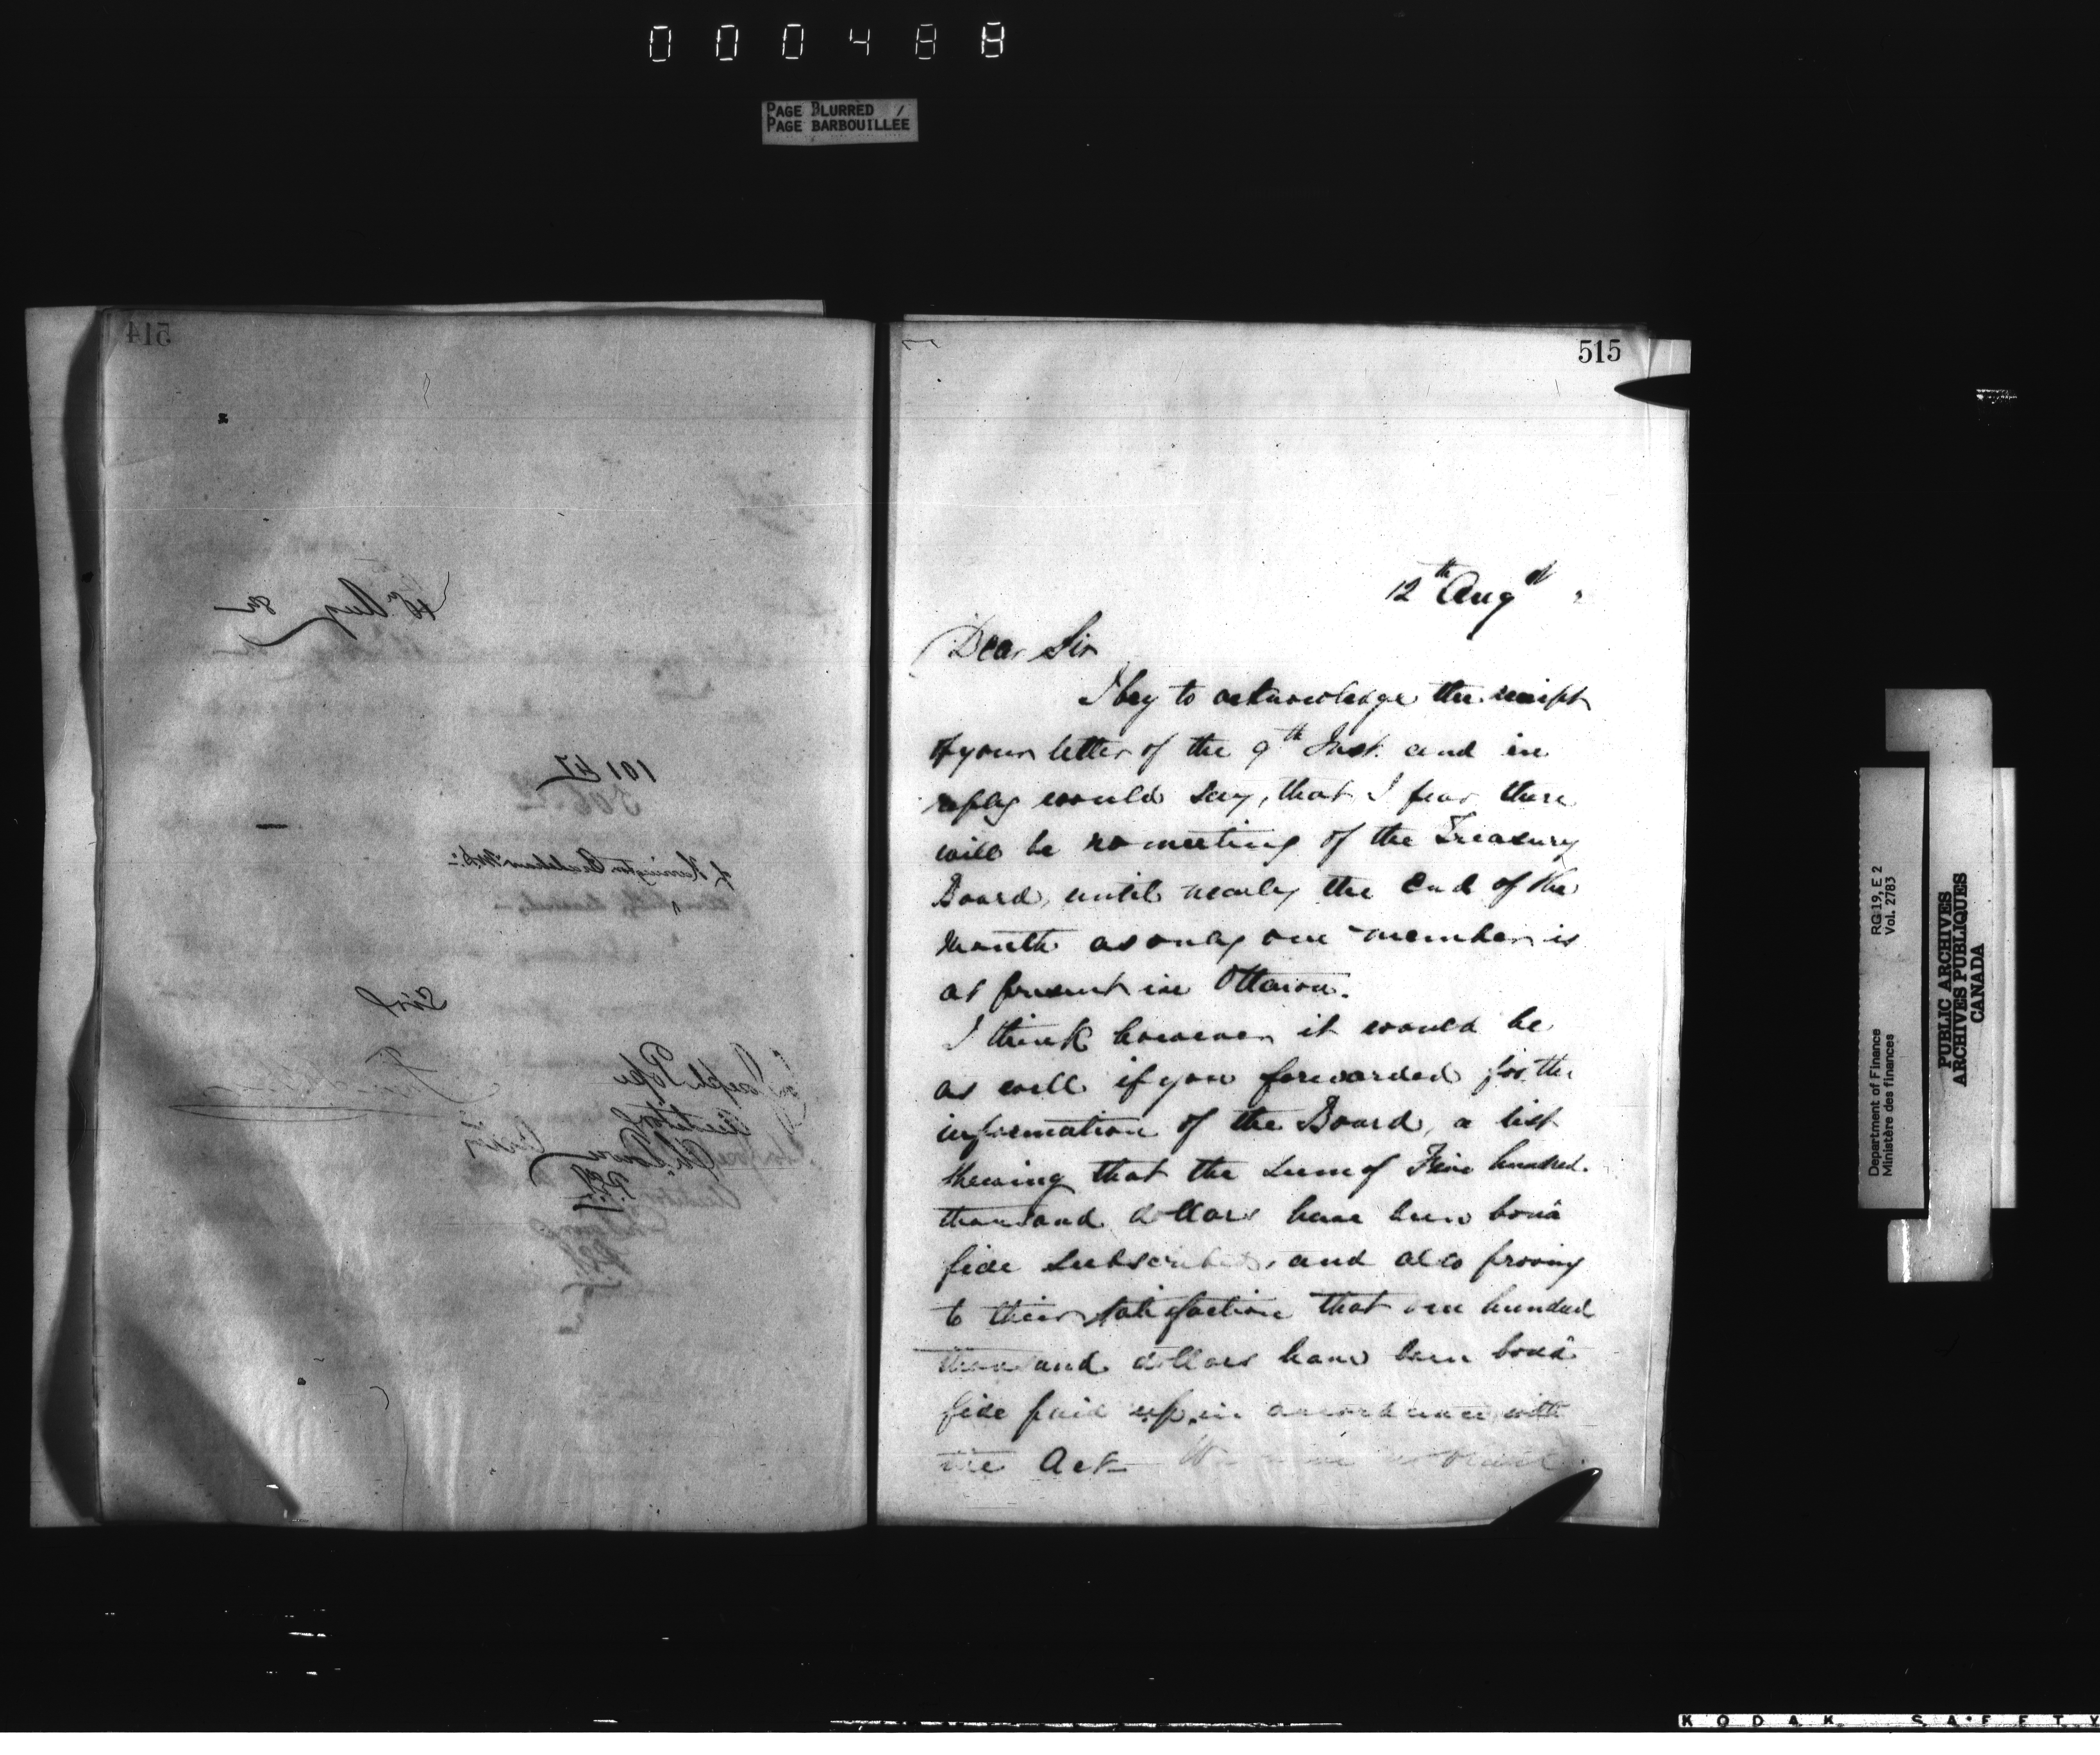 000488
PAGE BLURRED /
PAGE BARBOUILLEE
514
18th Aug 82
10147
Sir
Joseph Pope
Auditor
515
12th Augst
Dear Sir
I beg to acknowledge the receipt
of your letter of the 9th Inst. and in
reply would say, that I fear there
will be no meeting of the Treasury
Board, until nearly the end of the
month as only one member is
at present in Ottawa.
I think however it would be
as well if you forwarded for the
information of the Board, a list
shewing that the sum of Five hundred
thousand dollars have been bonâ
fide subscribed, and also proving
to their satisfaction that one hundred
thousand dollars have been bonâ
fide paid up, in accordance with
the Act
Department of Finance RG 19, E 2
Ministère des finances Vol. 2783
PUBLIC ARCHIVES
ARCHIVES PUBLIQUES
CANADA
KODAK SAFETY